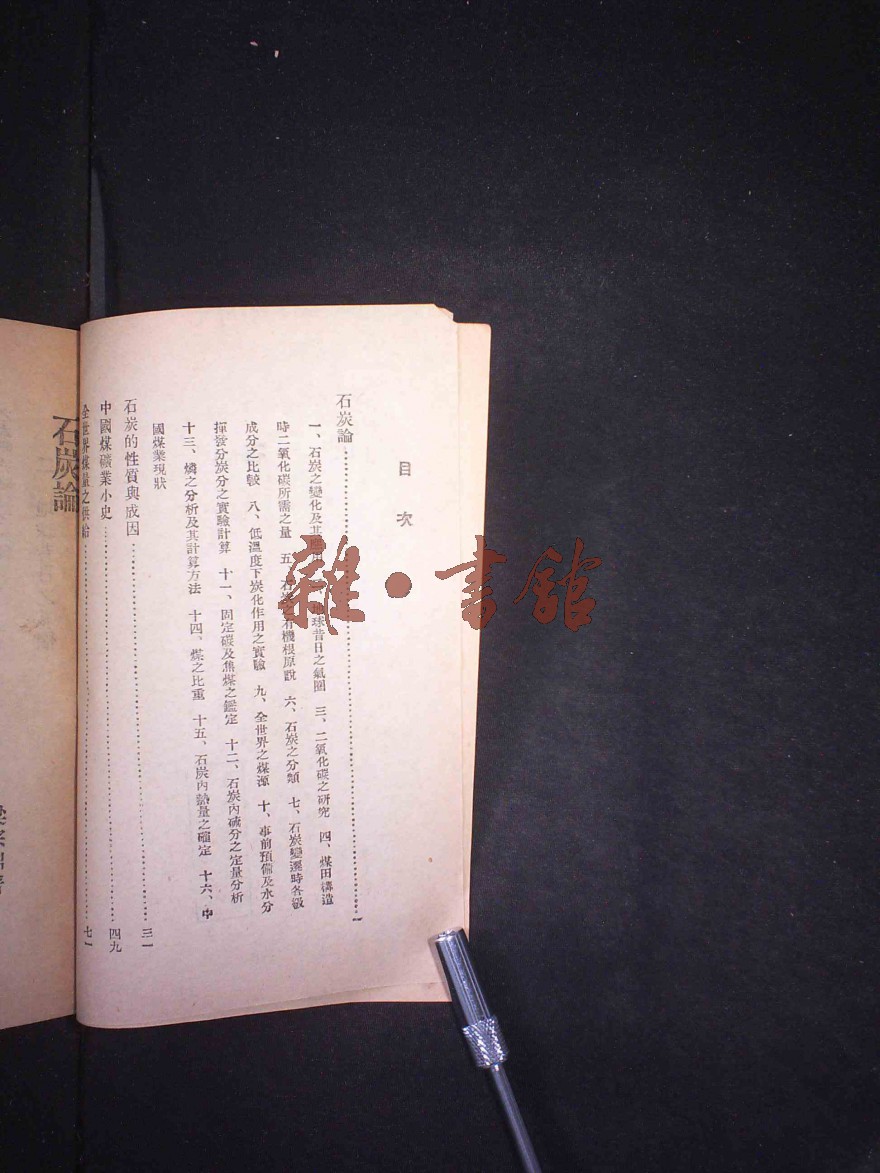 目次
石炭論……一
一、石炭之變化及其 地球昔日之氣圈 三、二氧化碳之研究 四、煤田構造
時二氧化碳所需之量 五、石炭之有機根原說 六、石炭之分類 七、石炭變遷時各級
成分之比較 八、低溫度下炭化作用之實驗 九、全世界之煤源 十、事前預備及水分
揮發分炭分之實驗計算 十一、固定碳及焦煤之鑑定 十二、石炭內硫分之定量分析
十三、燐之分析及其計算方法 十四、煤之比重 十五、石炭內熱量之確定 十六、中
國煤業現狀
石炭的性質與成因……三一
中國煤礦業小史……四九
全世界煤量之供給……七一
石炭論
雜·書館